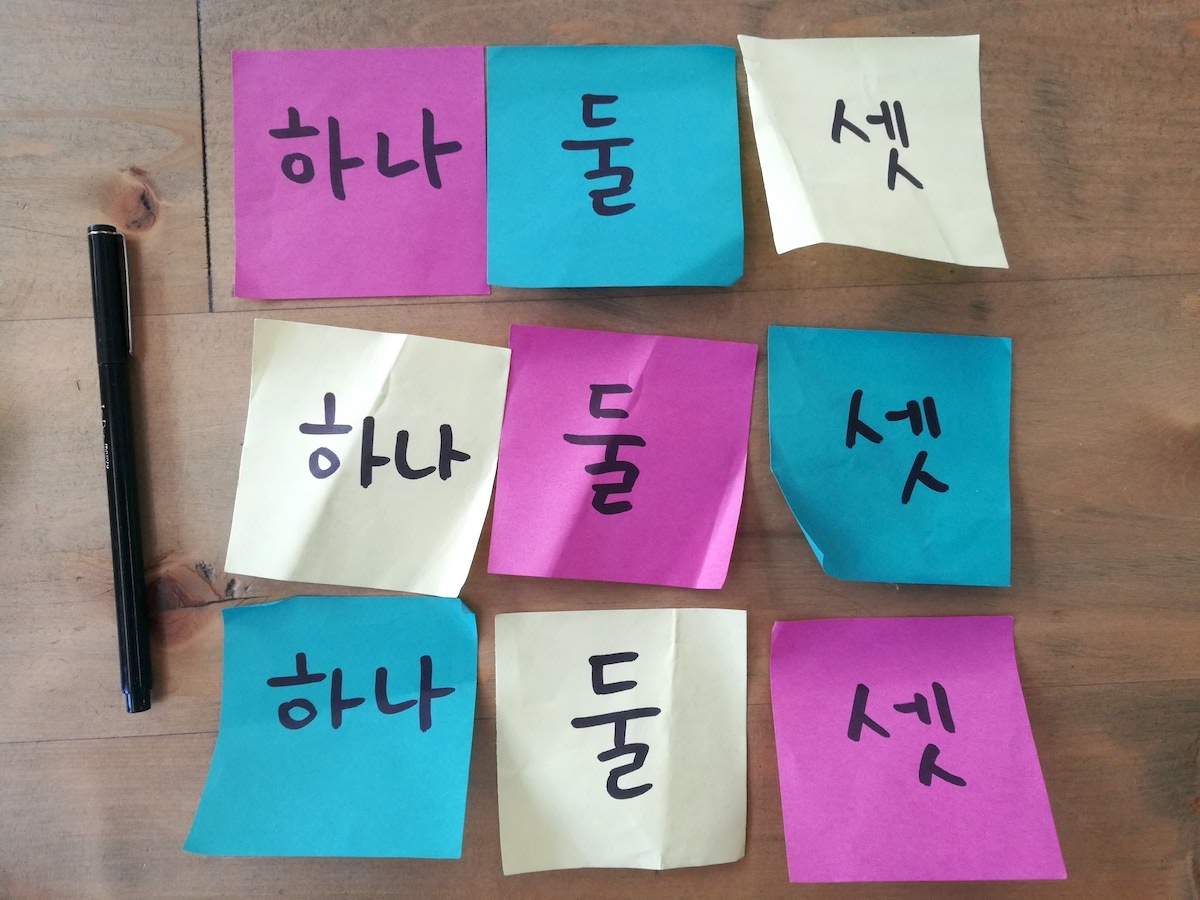 하나 둘 셋
하나 둘 셋
하나 둘 셋